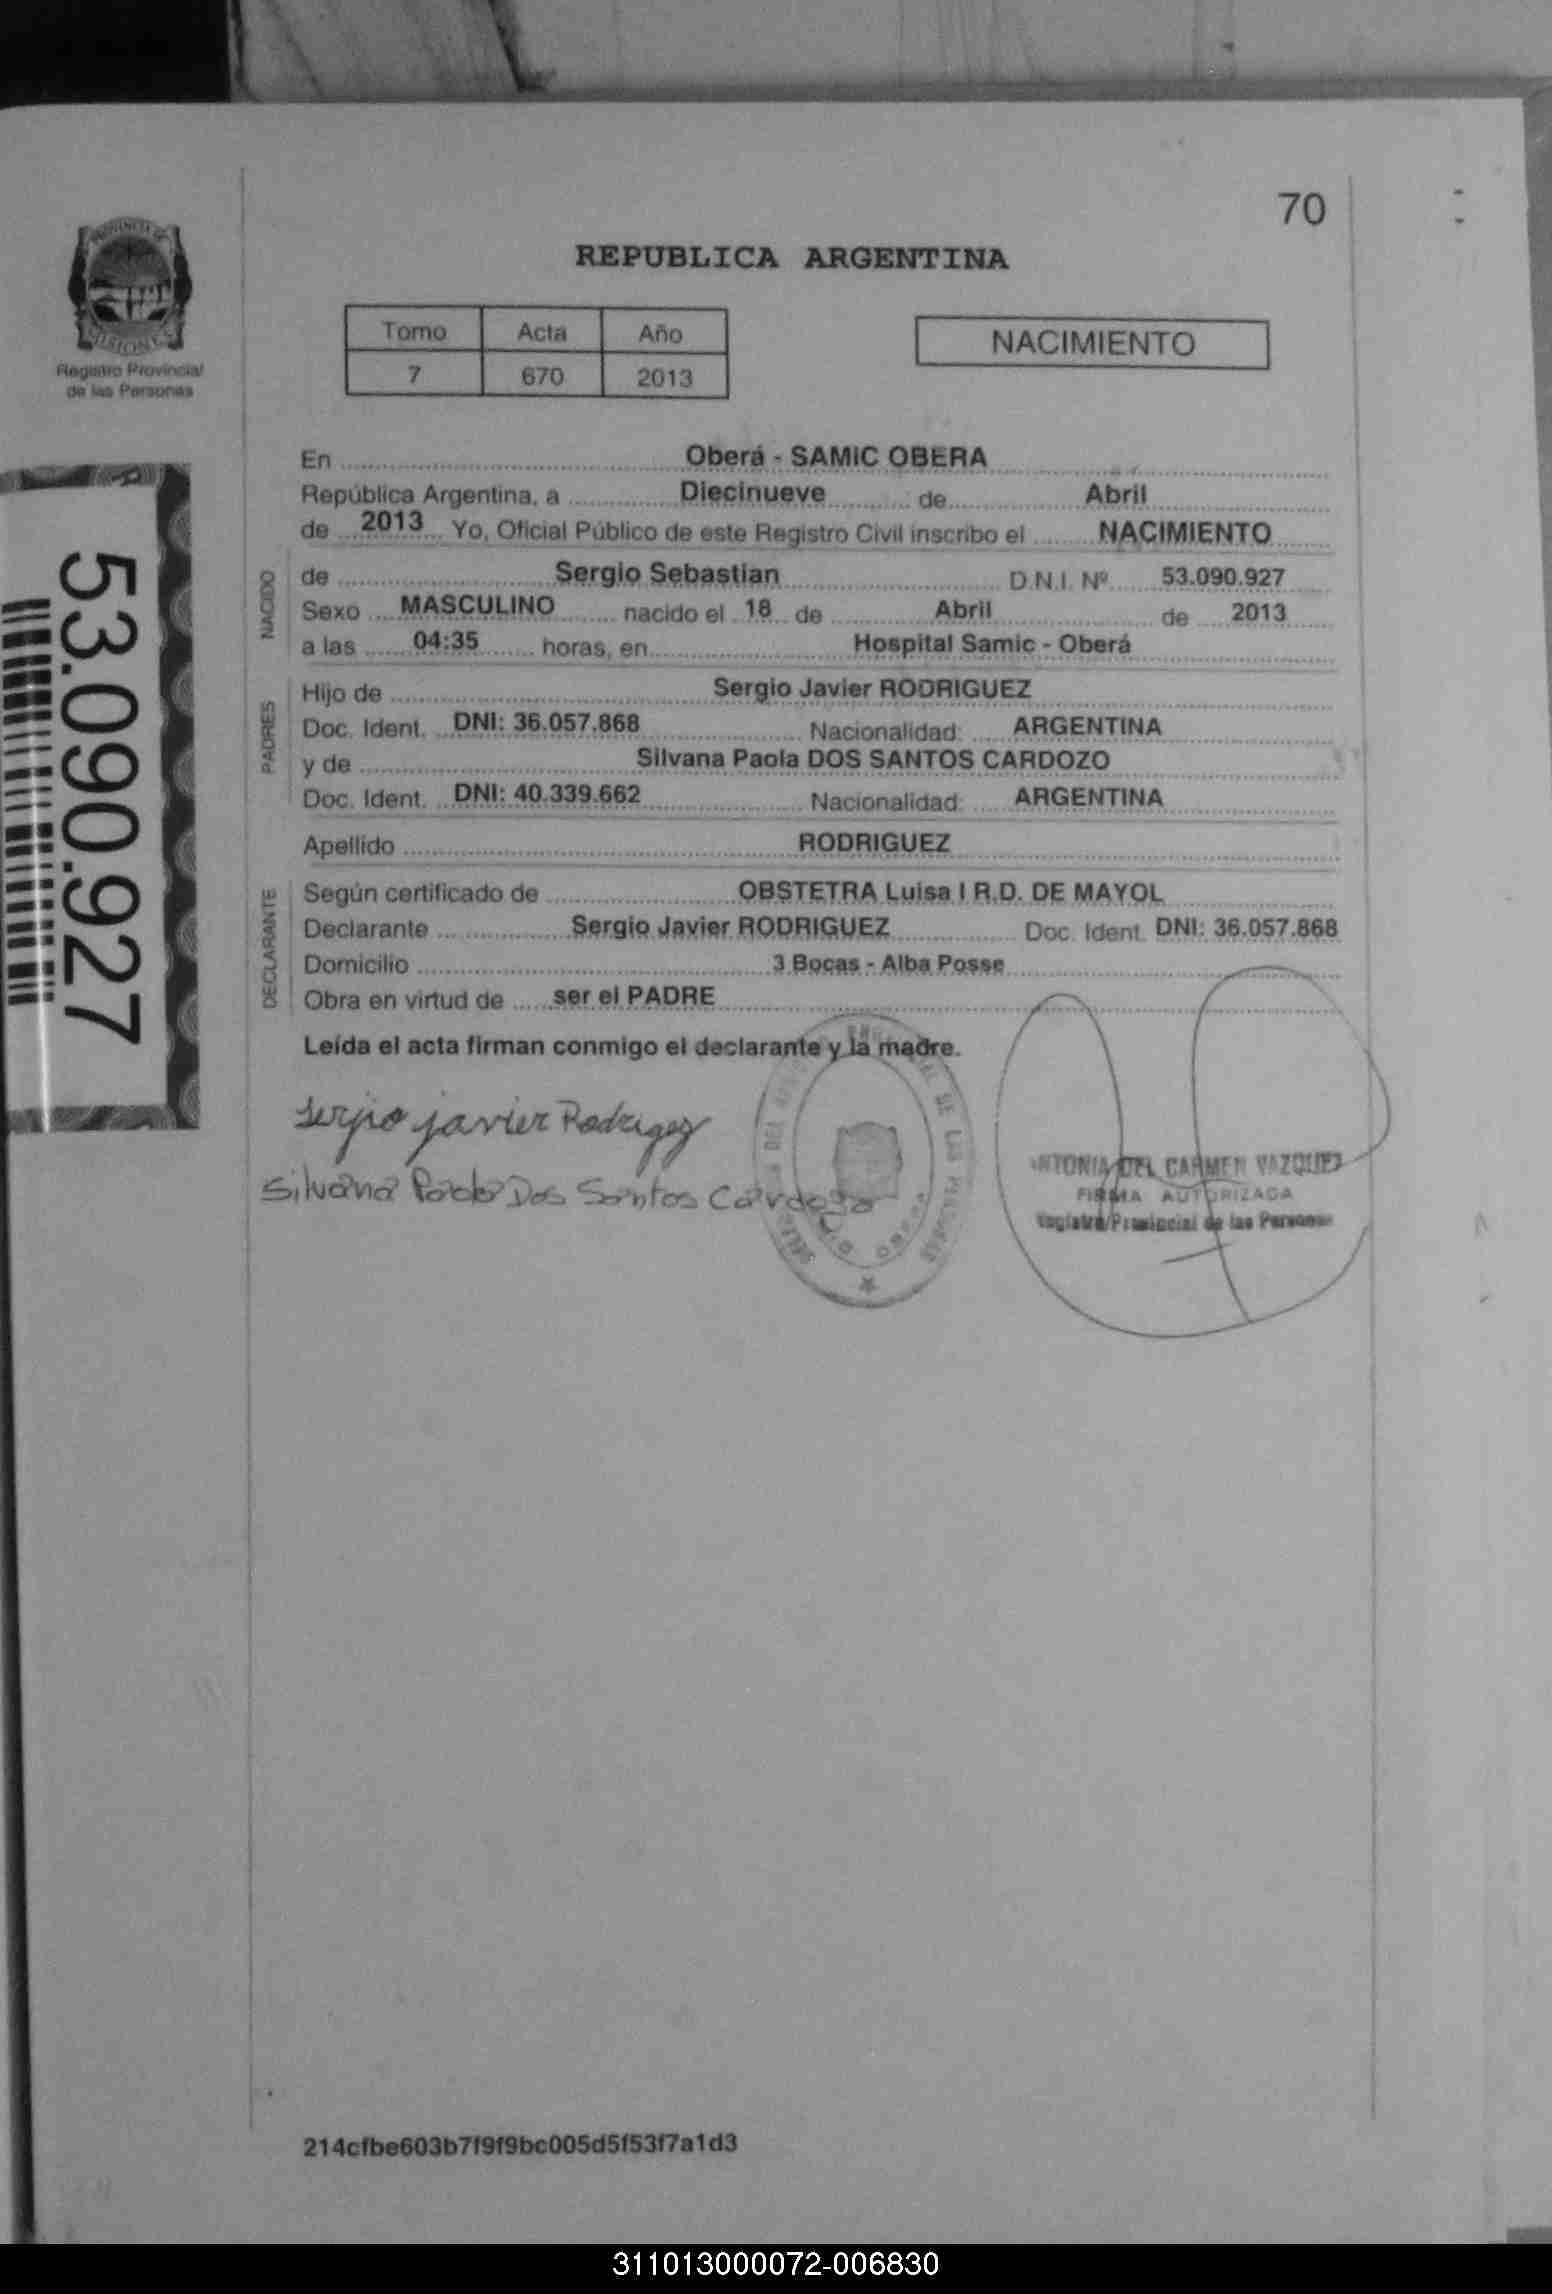 70
REPUBLICA ARGENTINA
PROVINCIA DE
MISIONES
Registro Provincial
de las Personas
Tomo Acta Año
7 670 2013
NACIMIENTO
53.090.927
En Oberá - SAMIC OBERA
República Argentina, a Diecinueve de Abril
de 2013 Yo, Oficial Público de este Registro Civil inscribo el NACIMIENTO
NACIDO
de Sergio Sebastian D.N.I. Nº 53.090.927
Sexo MASCULINO nacido el 18 de Abril de 2013
a las 04:35 horas, en Hospital Samic - Oberá
PADRES
Hijo de Sergio Javier RODRIGUEZ
Doc. Ident. DNI: 36.057.868 Nacionalidad: ARGENTINA
y de Silvana Paola DOS SANTOS CARDOZO
Doc. Ident. DNI: 40.339.662 Nacionalidad: ARGENTINA
Apellido RODRIGUEZ
DECLARANTE
Según certificado de OBSTETRA Luisa I R.D. DE MAYOL
Declarante Sergio Javier RODRIGUEZ Doc. Ident. DNI: 36.057.868
Domicilio 3 Bocas - Alba Posse
Obra en virtud de ser el PADRE
Leída el acta firman conmigo el declarante y la madre.
Serjio javier Rodrigez
Silvana Paola Dos Santos Cardozo
DEL DE LAS
NTONIA DEL CARMEN VAZQUEZ
FIRMA AUTORIZADA
Registro Provincial de las Personas
214cfbe603b7f9f9bc005d5f53f7a1d3
311013000072-006830